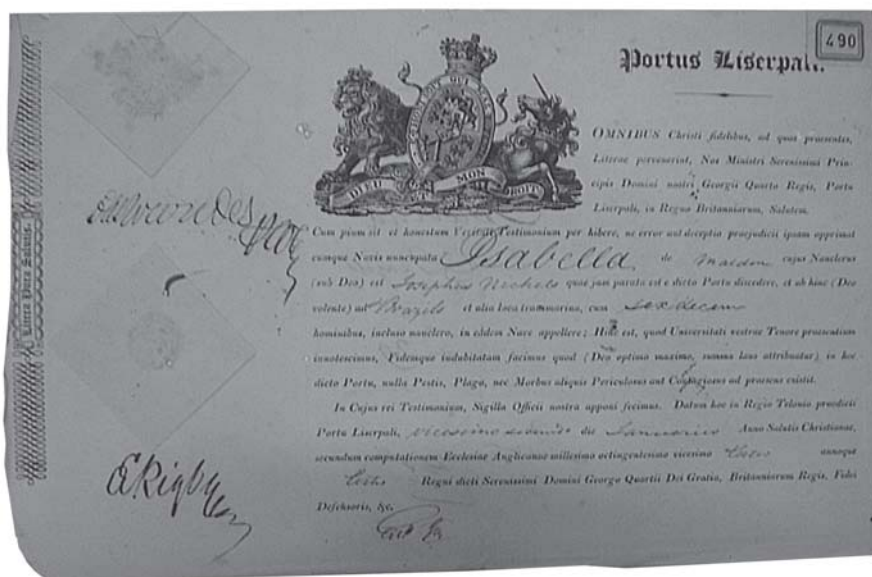 490
Portus Liserpali.
OMNIBUS Christi fidelibus, ad quos praesentes,
Literae pervenerint, Nos Ministri Serenissimi Prin-
cipis Domini nostri Georgii Quarto Regis, Portu
Liserpoli, in Regno Britanniarum, Salutem.
DIEU ET MON DROIT
Cum pium sit et honestum Veritati Testimonium per hibere, ne error aut deceptio praejudicii ipsam opprimat
cumque Navis nuncupata Isabella de Maldon cujus Nauclerus
(sub Deo) est Josephus Nichols quae jam parata est e dicto Portu discedere, et ab hinc (Deo
volente) ad Brazils et alia loca transmarina, cum sexdecem
hominibus, incluso nauclero, in eddem Nave appellere; Hinc est, quod Universitati vestrae Tenore praesentium
innotescimus, Fidemque indubitatam facimus quod (Deo optimo maximo, summa laus attribuatur) in hoc
dicto Portu, nulla Pestis, Plaga, nec Morbus aliquis Periculosus aut Contagiosus ad praesens existit.
In Cujus rei Testimonium, Sigilla Officii nostra apponi fecimus. Datum hoc in Regio Telonio praedicti
Portu Liserpoli, die Januarius Anno Salutis Christianae,
secundum computationem Ecclesiae Anglicanae millesimo octingentesimo vicesimo annoque
Regni dicti Serenissimi Domini Georgo Quartii Dei Gratia, Britanniarum Regis, Fidei
Defensoris, &c.
Litera Pura Salutis.
ERigby